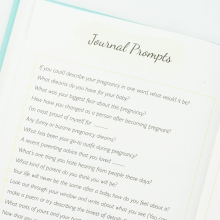 Journal Prompts
If you could describe your pregnancy in one word, what would it be?
What dreams do you have for your baby?
What was your biggest fear about this pregnancy?
How have you changed as a person after becoming pregnant?
I'm most proud of myself for
Any funny or bizarre pregnancy dreams?
What has been your go-to outfit during pregnancy?
A recent parenting advice that you loved
What's one thing you hide hearing from people these days?
What kind of parents do you think you will be?
Your life will never be the same after a baby, how do you feel about it?
Look out through your window and write about what you see. (You can
make a poem or try describing the mood of
What traits of yours and your
Now that you